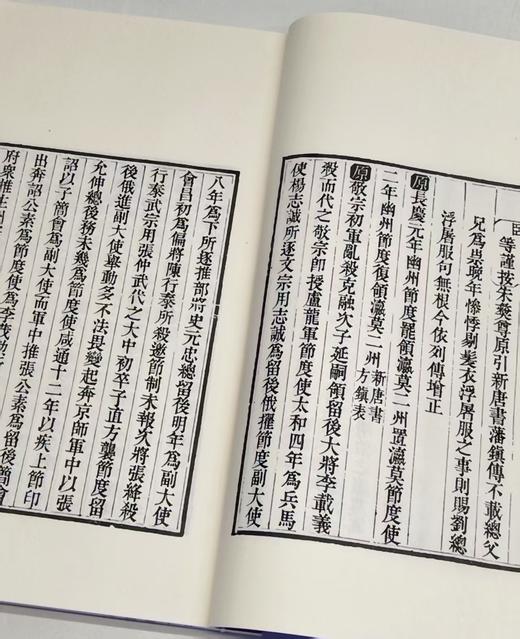 臣等謹按朱彝尊原引新唐書藩鎮傳不載總父
兄爲祟晚年慘悸剔髮衣浮屠服之事則賜劉總
浮屠服句無根今依列傳增正
原長慶元年幽州節度罷領瀛莫二州置瀛莫節度使
二年幽州節度復領瀛莫二州 新唐書方鎮表
原敬宗初軍亂殺克融次子延嗣領留後大將李載義
殺而代之敬宗卽授盧龍軍節度使太和四年爲兵馬
使楊志誠所逐文宗用志誠爲留後俄擢節度副大使
八年爲下所逐推部將史元忠總留後明年爲副大使
會昌初爲偏將陳行泰所殺邀節制未報次將張絳殺
行泰武宗用張仲武代之大中初卒子直方襲節度留
後俄進副大使舉動多不法畏變起奔京師軍中以張
允伸總後務未幾爲節度使咸通十二年以疾上節印
詔以子簡會爲副大使而軍中推張公素爲留後簡會
出奔詔公素爲節度使爲李茂
府衆推主